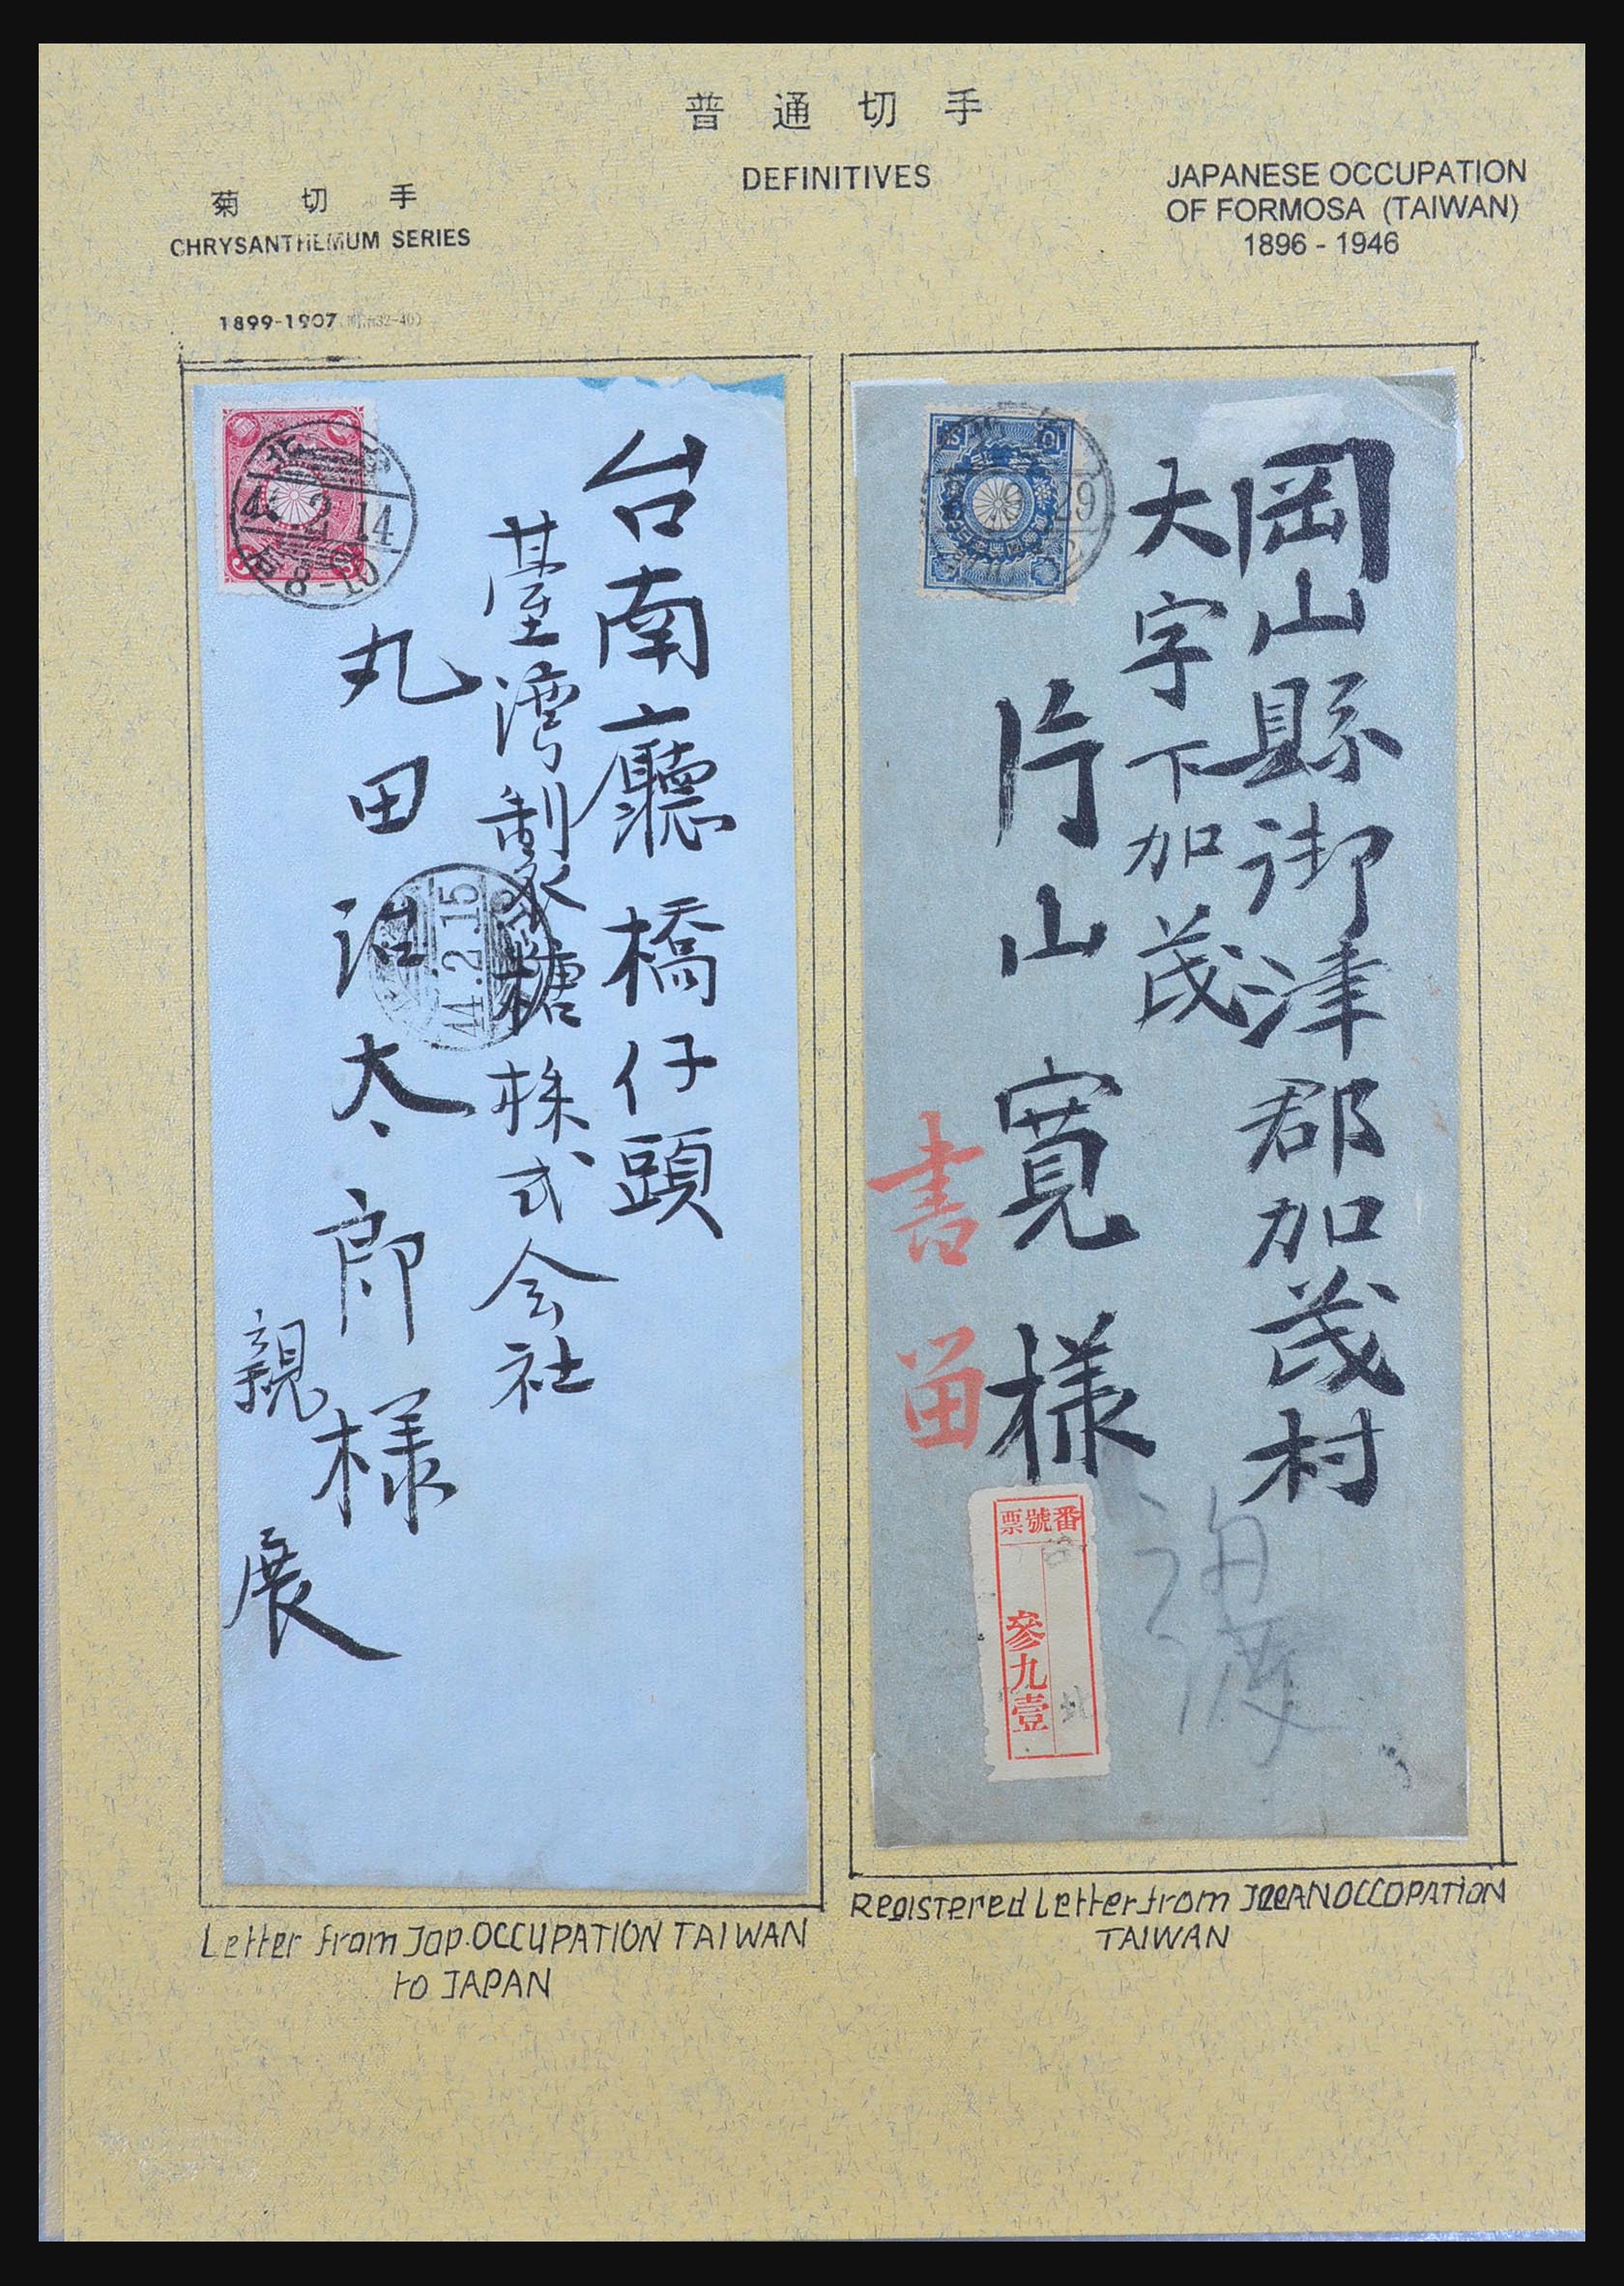 普通切手
DEFINITIVES
菊切手
CHRYSANTHEMUM SERIES
1899-1907
JAPANESE OCCUPATION
OF FORMOSA (TAIWAN)
1896 - 1946
台南廳橋仔頭
臺灣製糖株式会社
丸田治太郎様
親展
44.2.14
8-10
44.2.15
岡山縣御津郡加茂村
大字下加茂
片山寛様
書留
番號票
參九壹
北
Letter from Jap. OCCUPATION TAIWAN
to JAPAN
Registered Letter from JAPAN OCCOPATION
TAIWAN